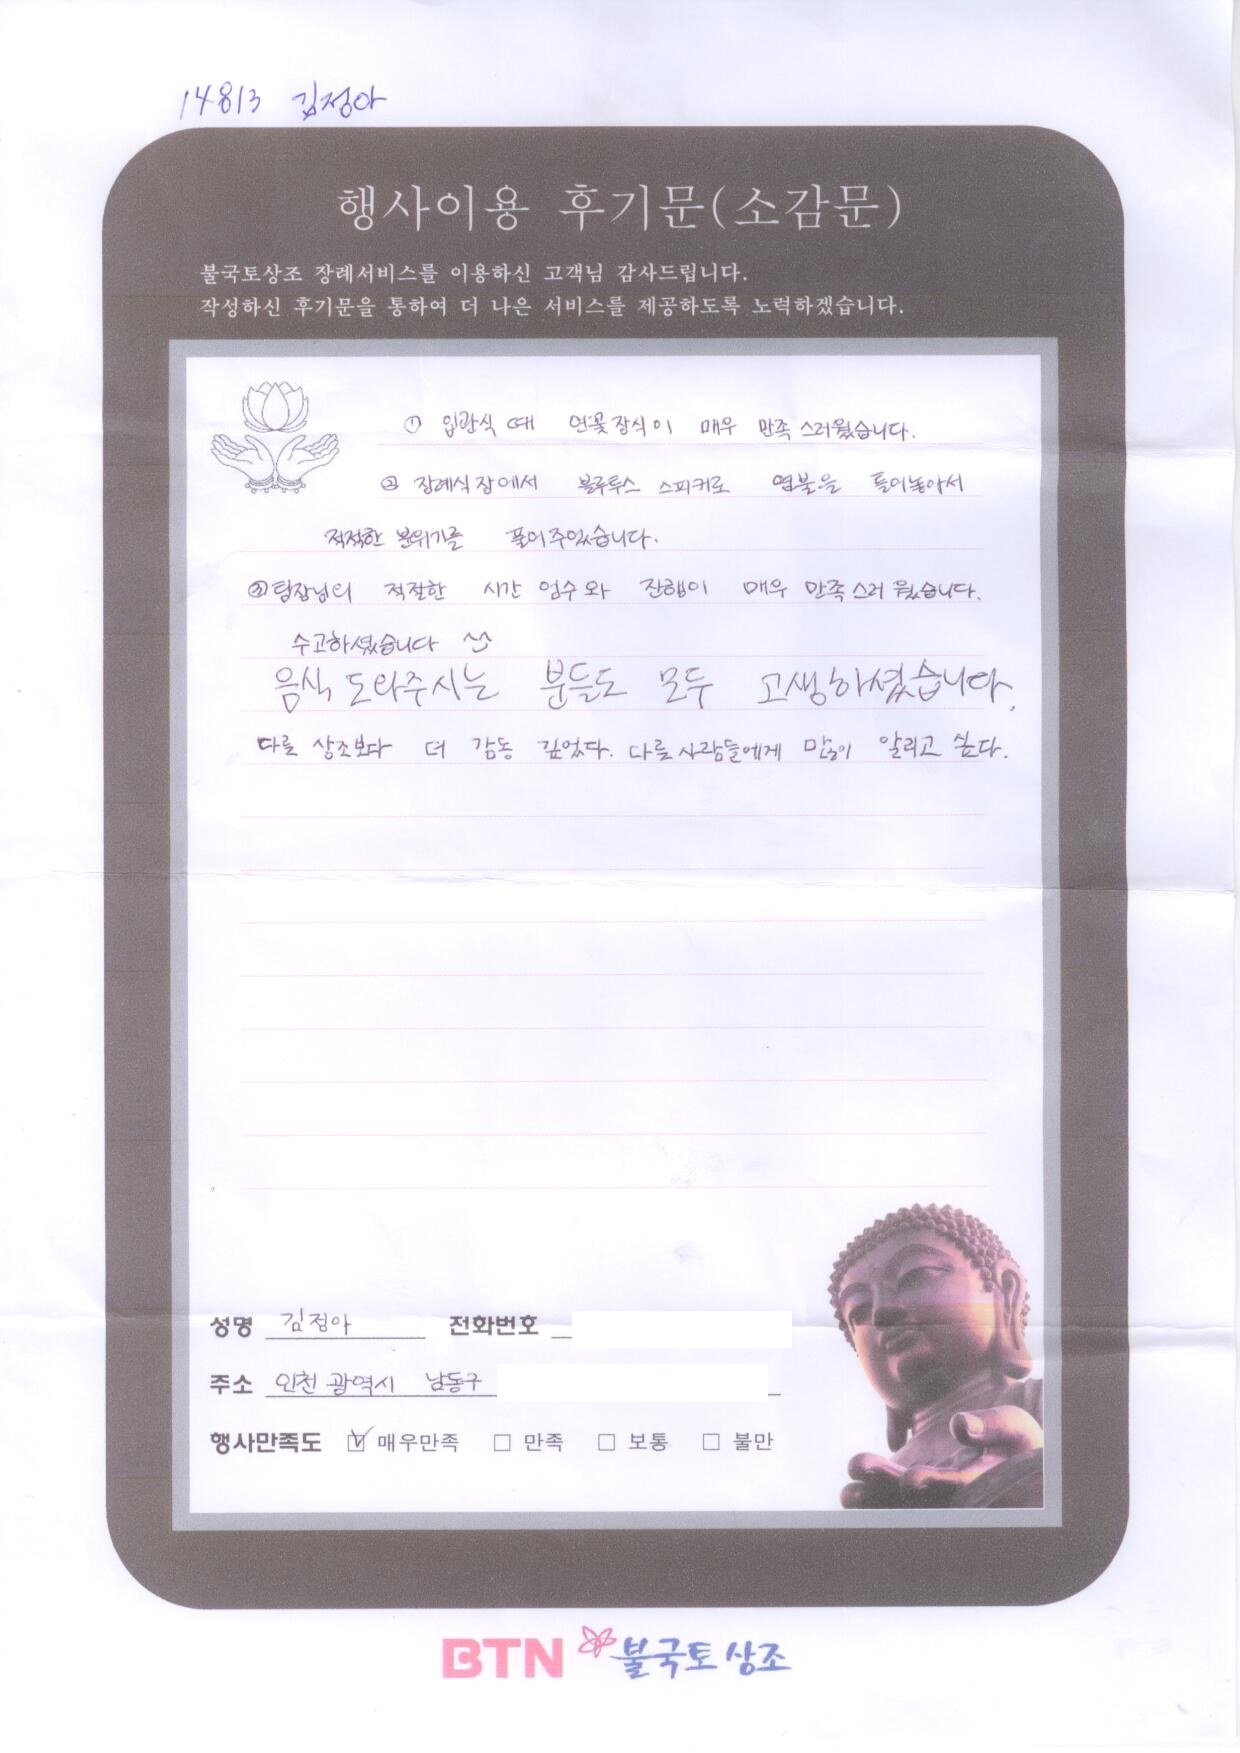 14813 김정아
행사이용 후기문(소감문)
불국토상조 장례서비스를 이용하신 고객님 감사드립니다.
작성하신 후기문을 통하여 더 나은 서비스를 제공하도록 노력하겠습니다.
① 입관식 때 연꽃장식이 매우 만족스러웠습니다.
② 장례식장에서 블루투스 스피커로 염불을 틀어놓아서
적적한 분위기를 풀어주었습니다.
③ 팀장님의 적절한 시간 엄수와 진행이 매우 만족스러웠습니다.
수고하셨습니다 ^^
음식 도와주시는 분들도 모두 고생하셨습니다.
다른 상조보다 더 감동 깊었다. 다른 사람들에게 많이 알리고 싶다.
성명 김정아 전화번호
주소 인천 광역시 남동구
행사만족도 ☑ 매우만족 □ 만족 □ 보통 □ 불만
BTN 불국토상조